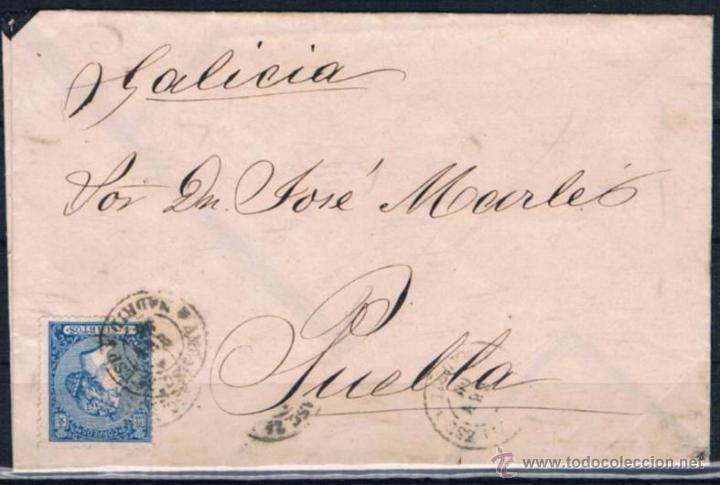 Galicia
Sor Dn. José Marlés
Puebla
CUARTOS
© www.todocoleccion.net